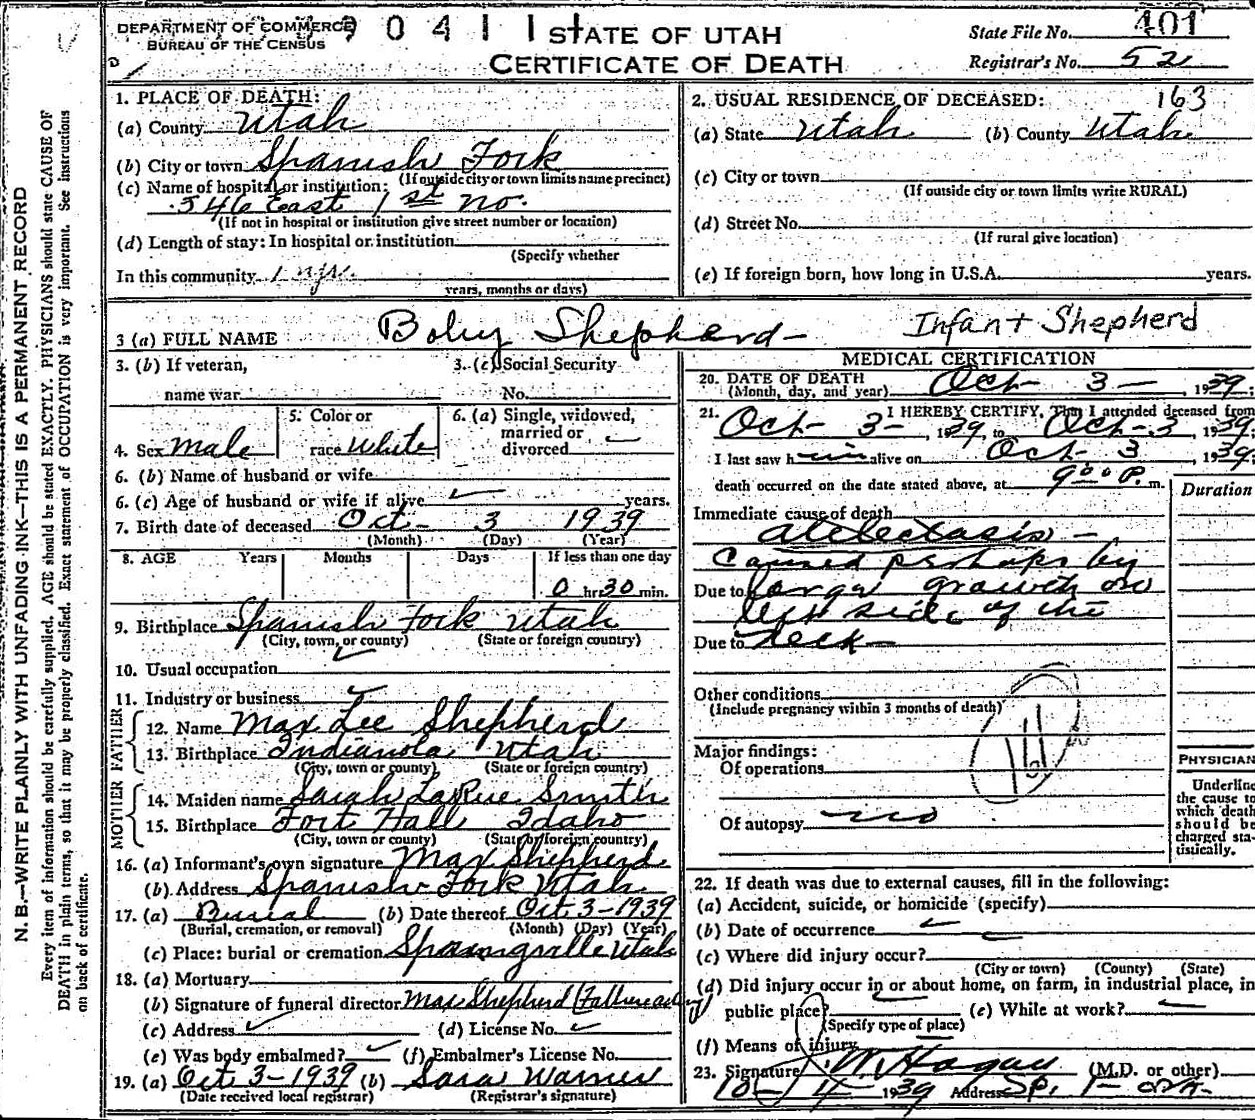 DEPARTMENT OF COMMERCE
BUREAU OF THE CENSUS
9 0 4 1 1
STATE OF UTAH
CERTIFICATE OF DEATH
State File No. 401
Registrar's No. 52
N. B.—WRITE PLAINLY WITH UNFADING INK—THIS IS A PERMANENT RECORD
Every item of information should be carefully supplied. AGE should be stated EXACTLY. PHYSICIANS should state CAUSE OF
DEATH in plain terms, so that it may be properly classified. Exact statement of OCCUPATION is very important. See instructions
on back of certificate.
1. PLACE OF DEATH:
(a) County Utah
(b) City or town Spanish Fork
(If outside city or town limits name precinct)
(c) Name of hospital or institution:
546 East 1st no.
(If not in hospital or institution give street number or location)
(d) Length of stay: In hospital or institution
(Specify whether
In this community 1 yr.
years, months or days)
2. USUAL RESIDENCE OF DECEASED: 163
(a) State Utah (b) County Utah
(c) City or town
(If outside city or town limits write RURAL)
(d) Street No.
(If rural give location)
(e) If foreign born, how long in U.S.A. years.
3 (a) FULL NAME Boby Shepherd - Infant Shepherd
3. (b) If veteran,
name war
3. (c) Social Security
No.
4. Sex male
5. Color or
race White
6. (a) Single, widowed,
married or
divorced
6. (b) Name of husband or wife
6. (c) Age of husband or wife if alive years.
7. Birth date of deceased Oct - 3 1939
(Month) (Day) (Year)
8. AGE Years Months Days If less than one day
0 hr 30 min.
9. Birthplace Spanish Fork Utah
(City, town, or county) (State or foreign country)
10. Usual occupation
11. Industry or business
FATHER
12. Name Max Lee Shepherd
13. Birthplace Indianola Utah
(City, town or county) (State or foreign country)
MOTHER
14. Maiden name Sarah LaRue Smith
15. Birthplace Fort Hall Idaho
(City, town or county) (State or foreign country)
16. (a) Informant's own signature Max Shepherd
(b) Address Spanish Fork Utah
17. (a) Burial (b) Date thereof Oct 3-1939
(Burial, cremation, or removal) (Month) (Day) (Year)
(c) Place: burial or cremation Springville Utah
18. (a) Mortuary
(b) Signature of funeral director Max Shepherd (Father
(c) Address (d) License No.
(e) Was body embalmed? (f) Embalmer's License No.
19. (a) Oct 3-1939 (b) Sara Warner
(Date received local registrar) (Registrar's signature)
MEDICAL CERTIFICATION
20. DATE OF DEATH
(Month, day, and year) Oct - 3 - , 1939.
21. I HEREBY CERTIFY, That I attended deceased from
Oct - 3 - , 1939, to Oct - 3 , 1939.
I last saw him alive on Oct - 3 , 1939.
death occurred on the date stated above, at 9:00 P. m.
Duration
Immediate cause of death
atelectasis -
Caused perhaps by
Due to large growth on
left side of the
Due to neck -
Other conditions
(Include pregnancy within 3 months of death)
Major findings:
Of operations
Of autopsy no
PHYSICIAN
Underline
the cause to
which death
should be
charged sta-
tistically.
22. If death was due to external causes, fill in the following:
(a) Accident, suicide, or homicide (specify)
(b) Date of occurrence
(c) Where did injury occur?
(City or town) (County) (State)
(d) Did injury occur in or about home, on farm, in industrial place, in
public place? (e) While at work?
(Specify type of place)
(f) Means of injury
23. Signature Hagan (M.D. or other)
10 - 4 1939 Address